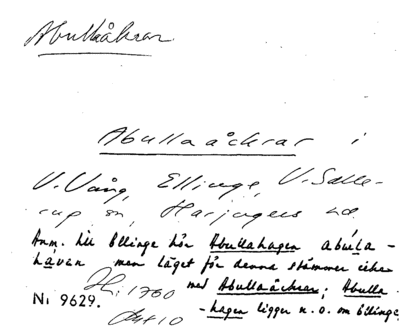 Abullaåkrar
Abullaåckrar i
V. Vång, Ellinge, V. Salle-
rup sn, Harjagers hd.
Anm. till Ellinge hör Abullahagen abula-
havan men läget för denna stämmer icke
med Abullaåckrar; Abulla-
Hi 1760
-hagen ligger n. o. om Ellinge,
Ni 9629.
10